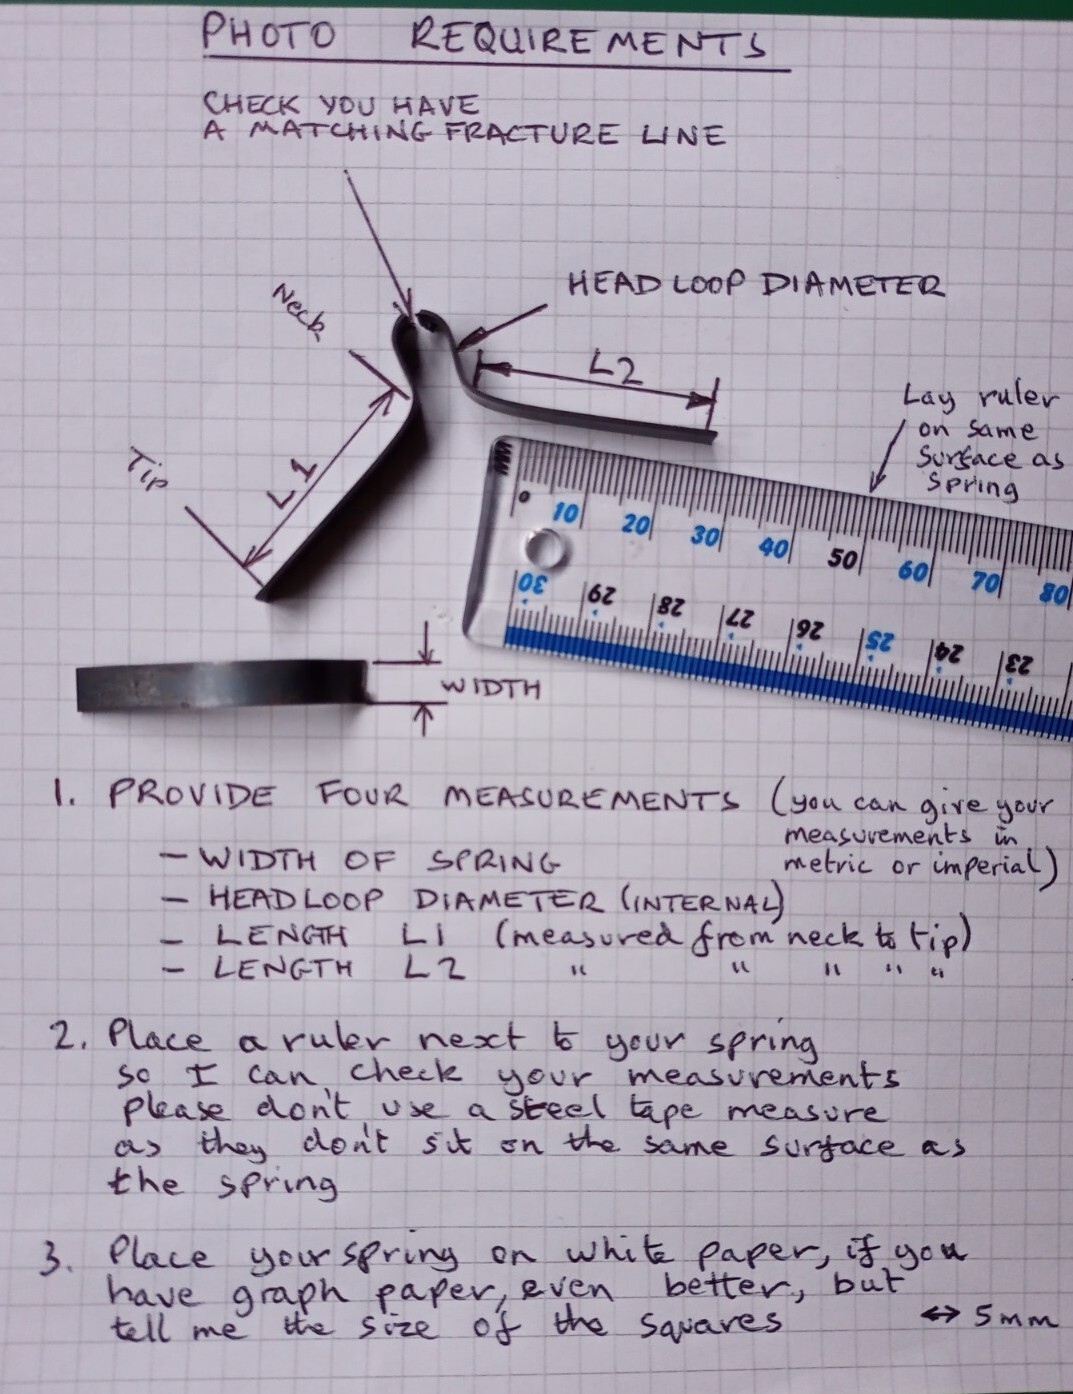 PHOTO REQUIREMENTS
CHECK YOU HAVE
A MATCHING FRACTURE LINE
Neck
HEAD LOOP DIAMETER
L2
Lay ruler
on same
surface as
spring
Tip
L1
0 10 20 30 40 50 60 70 80
30 29 28 27 26 25 24 23
WIDTH
1. PROVIDE FOUR MEASUREMENTS (you can give your
measurements in
metric or imperial)
— WIDTH OF SPRING
— HEAD LOOP DIAMETER (INTERNAL)
— LENGTH L1 (measured from neck to tip)
— LENGTH L2 " " " " "
2. Place a ruler next to your spring
so I can check your measurements
please don't use a steel tape measure
as they don't sit on the same surface as
the spring
3. Place your spring on white paper, if you
have graph paper, even better, but
tell me the size of the squares
↔ 5mm